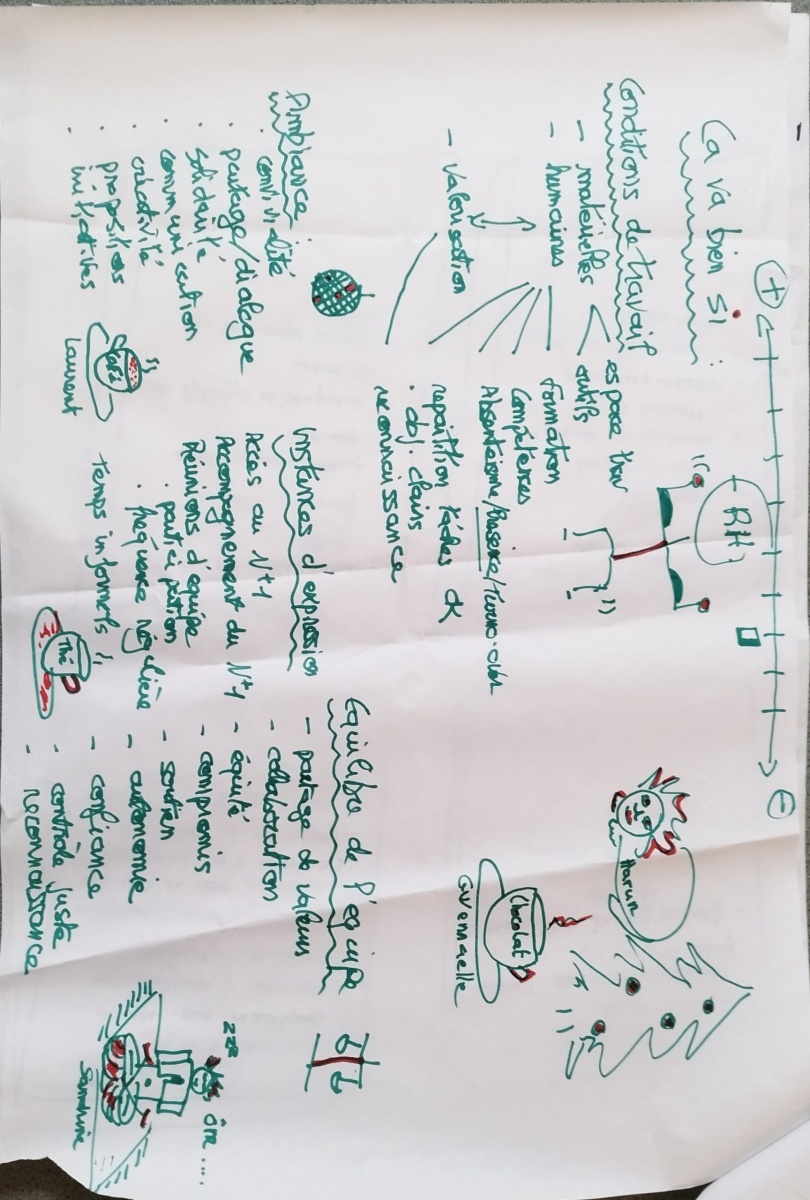 +
-
RH
Ca va bien si :
Conditions de travail
- matérielles < espace trav
outils
- humaines
formation
Compétences
Absentéisme/Présence/
répartition tâches
. obj. clairs
- valorisation
reconnaissance
Harum
Chocolat
Gwennaelle
Ambiance :
. convivialité
. partage/dialogue
. solidarité
. communication
. créativité
. propositions
. initiatives
Café
Laurent
Instances d'expression
Accès au N+1
Accompagnement du N+1
Réunions d'équipe
. participation
. fréquence régulière
Temps informels
Thé
Equilibre de l'équipe
- partage de valeurs
- collaboration
- équité
- compromis
- soutien
- autonomie
- confiance
- contrôle juste
- reconnaissance
zzz
Sandrine